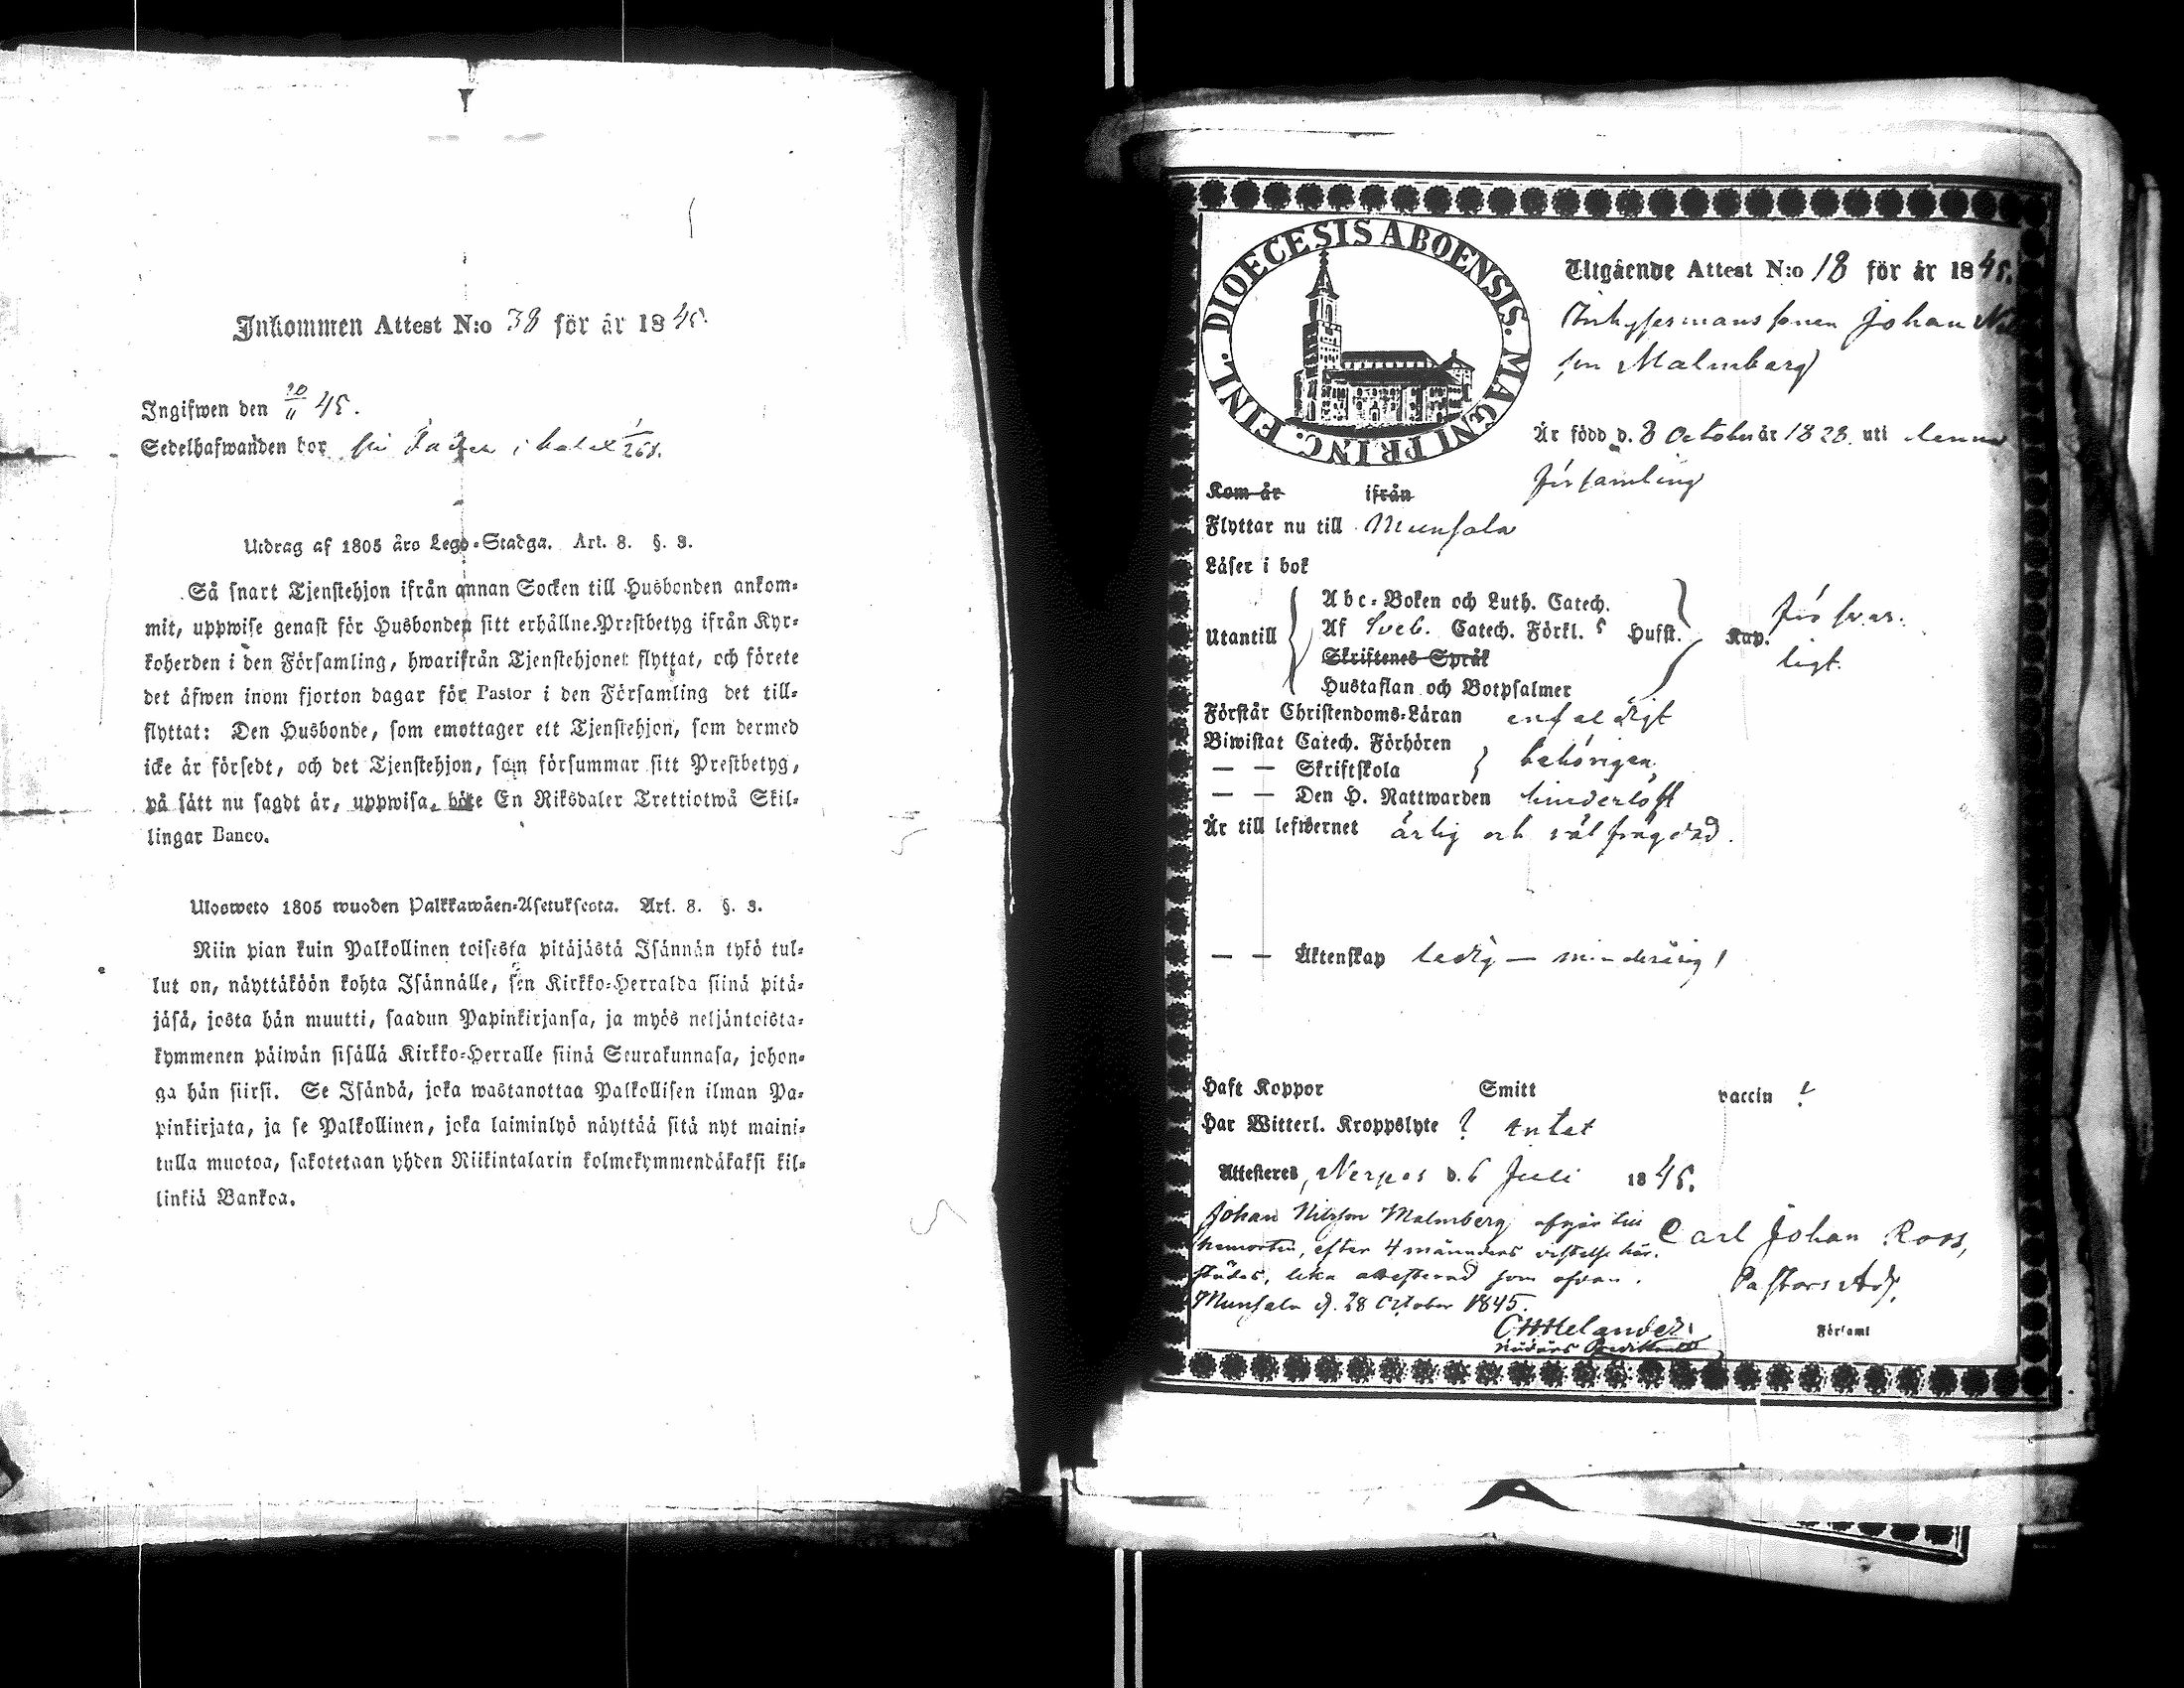 Inkommen Attest N:o 38 för år 1845.
Ingifwen den 20/11 45.
Sedelhafwanden bor
Utdrag af 1805 års Lego-Stadga. Art. 8. §. 3.
Så snart Tjenstehjon ifrån annan Socken till Husbonden ankom-
mit, uppwise genast för Husbonden sitt erhållne Prestbetyg ifrån Kyr-
koherden i den Församling, hwarifrån Tjenstehjonet flyttat, och förete
det äfwen inom fjorton dagar för Pastor i den Församling det till-
flyttat: Den Husbonde, som emottager ett Tjenstehjon, som dermed
icke är försedt, och det Tjenstehjon, som försummar sitt Prestbetyg,
på sätt nu sagdt är, uppwisa, böte En Riksdaler Trettiotwå Skil-
lingar Banco.
Ulosweto 1805 wuoden Palkkawäen-Asetuksesta. Art. 8. §. 3.
Niin pian kuin Palkollinen toisesta pitäjästä Isännän tykö tul-
lut on, näyttäköön kohta Isännälle, sen Kirkko-Herralda siinä pitä-
jäsä, josta hän muutti, saadun Papinkirjansa, ja myös neljäntoista-
kymmenen päiwän sisällä Kirkko-Herralle siinä Seurakunnasa, johon-
ga hän siirsi. Se Isändä, joka wastanottaa Palkollisen ilman Pa-
pinkirjata, ja se Palkollinen, joka laiminlyö näyttää sitä nyt maini-
tulla muotoa, sakotetaan yhden Riikintalarin kolmekymmendäkaksi kil-
linkiä Bankoa.
DIOECESIS ABOENSIS. MAGNI PRINC. FINL.
Utgående Attest N:o 18 för år 1845.
Inhysesmans sonen Johan Nils
son Malmberg
Är född d. 8 October år 1828. uti denna
församling
Kom år ifrån
Flyttar nu till Munsala
Läser i bok
Utantill
Abc-Boken och Luth. Catech.
Af Sveb. Catech. Förkl. 5 Hufst. Kap.
Skriftenes Språk
Hustaflan och Botpsalmer
försvar.
ligt.
Förstår Christendoms-Läran enfaldigt
Biwistat Catech. Förhören
— — Skriftskola behörigen,
— — Den H. Nattwarden
Är till lefwernet ärlig och väl frägdad.
— — Äktenskap ledig — minderårig!
Haft Koppor Smitt vaccin !
Har Witterl. Kroppslyte ? intet
Attesteras, Nerpes d. 6 Juli 1845.
Carl Johan Roos,
Pastors Adj.
Församl
Johan Nilsson Malmberg afgår till
hemorten, efter 4 månaders vistelse här-
städes, lika attesterad som ofvan.
Munsala d. 28 October 1845.